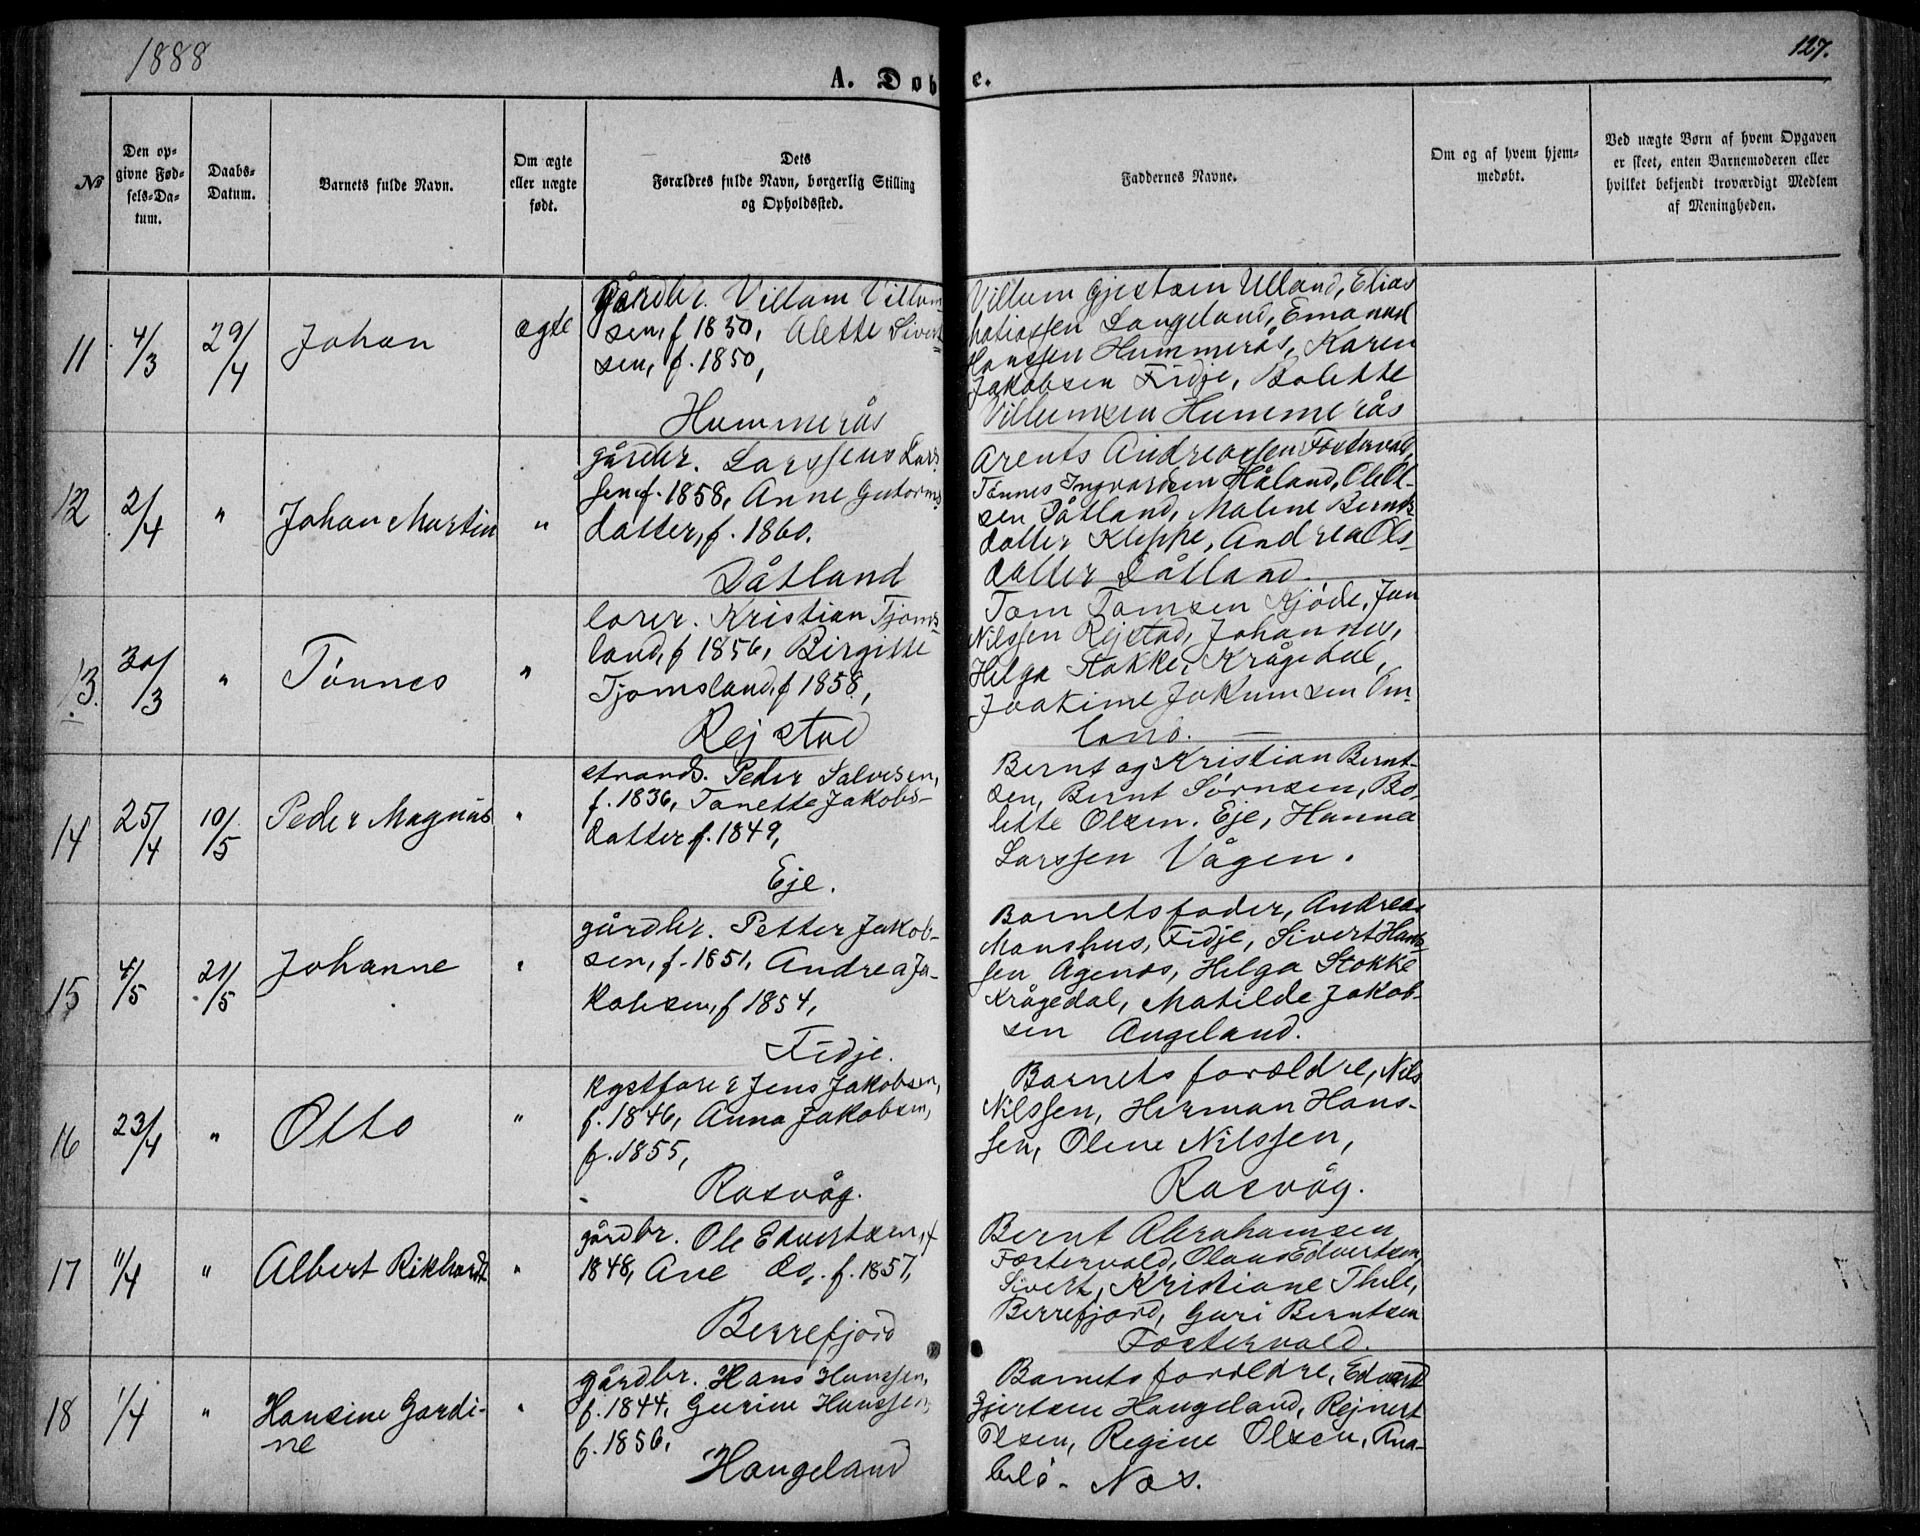 1888
127.
A. Døbte.
No
Den op-
givne Fød-
sels-Da-
tum.
Daabs-
Datum.
Barnets fulde Navn.
Om ægte
eller uægte
født.
Dets
Forældres fulde Navn, borgerlig Stilling
og Opholdssted.
Faddernes Navne.
Om og af hvem hjem-
medøbt.
Ved uægte Børn af hvem Opgaven
er skeet, enten Barnemoderen eller
hvilket bekjendt troværdigt Medlem
af Meningheden.
11
4/3
29/4
Johan
ægte
gårdbr. Villum Villum-
sen, f 1850, Alette Sivert-
sen, f. 1850,
Hummerås
Villum Gjertsen Ulland, Elias
Langeland, Emanuel
Hanssen Hummerås, Karen
Jakobsen Fidje, Bolette
Villumsen Hummerås
12
2/4
"
Johan Martin
"
gårdbr. Lars
sen f. 1858, Anne Gutorms-
datter, f. 1860.
Dåtland
Arents Andreassen Fostervold,
Tønnes Ingvardsen Håland,
sen Dåtland, Malene Bernts-
datter Kleppe, Andrea Ols-
datter Dåtland.
13.
30/3
"
Tønnes
"
lærer. Kristian Tjoms-
land, f 1856, Birgitte
Tjomsland, f 1858,
Rejstad
Tom Tomsen Kjøde, Jan
Nilssen Rejstad, Johannes,
Helga Stokke, Krågedal,
Joakime Jakumsen Om-
land.
14
25/4
10/5
Peder Magnus
"
strands. Peder Salvesen,
f. 1836, Tonette Jakobs-
datter f. 1849,
Eje.
Bernt og Kristian Bernt-
sen, Bernt Sørnsen, Bo-
lette Olsen. Eje, Hanna
Larssen Vågen.
15
4/5
21/5
Johanne
"
gårdbr. Petter Jakob-
sen, f. 1851, Andrea Ja-
kobsen, f 1854,
Fidje.
Barnets fader, Andreas
Monshus, Fidje, Sivert Hans-
sen Agenæs, Helga Stokke
Krågedal, Matilde Jakob-
sen Angeland.
16
23/4
"
Otto
"
kystfarer Jens Jakobsen,
f. 1846, Anna Jakobsen,
f. 1855,
Rasvåg.
Barnets forældre, Nils
Nilssen, Herman Hans-
sen, Olene Nilssen,
Rasvåg.
17
11/4
"
Albert Rikhardt
"
gårdbr. Ole Edvertsen, f
1848, Ane do., f. 1857,
Berrefjord
Bernt Abrahamsen
Fostervold, Olaus Edvertsen,
Sivert, Kristiane Thele,
Berrefjord, Guri Berntsen
Fostervold.
18
1/4
"
Hansine Gardi-
ne
"
gårdbr. Hans Hanssen,
f. 1844, Gurine Hanssen,
f. 1856,
Hangeland
Barnets forældre, Edvard
Gjertsen Hangeland, Rejnert
Olsen, Regine Olsen, Ana-
beló - Næs.